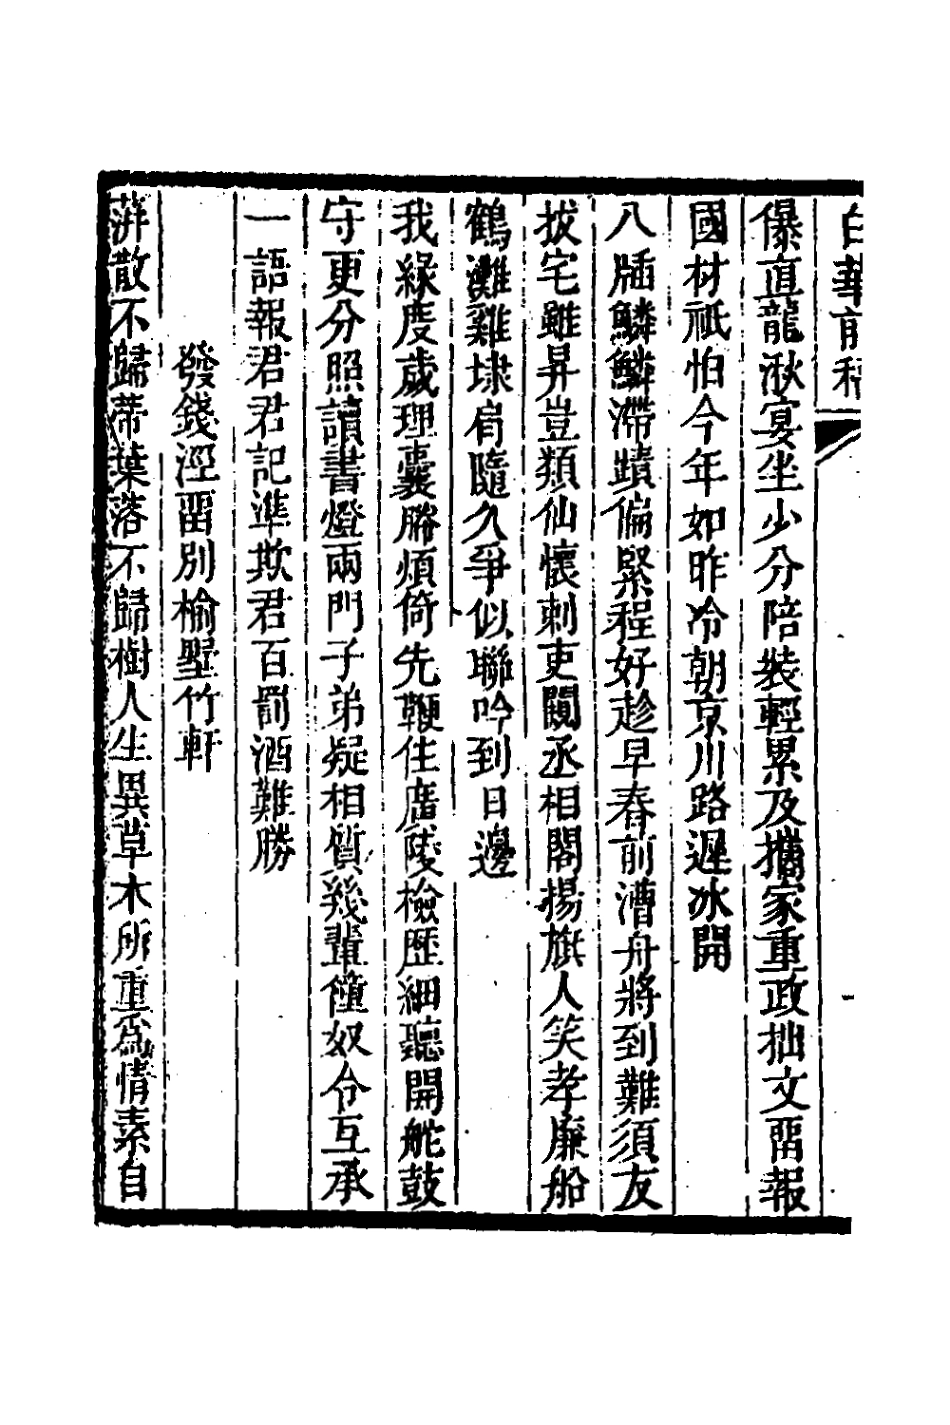 白華前稿
儤直龍湫宴坐少分陪裝輕累及攜家重政拙文畱報
國材祇怕今年如昨冷朝京川路遲冰開
八牐鱗鱗滯蹟偏緊程好趁早春前漕舟將到難須友
拔宅雖昇豈類仙懷刺吏闚丞相閤揚旗人笑孝廉船
鶴灘雞埭肩隨久爭似聯吟到日邊
我綠度歲理囊勝煩倚先鞭住廣陵檢歷細聽開舵鼓
守更分照讀書燈兩門子弟疑相質幾輩僮奴令互承
一語報君君記準欺君百罰酒難勝
發錢涇畱別榆墅竹軒
蓱散不歸蒂葉落不歸樹人生異草木所重為情素自